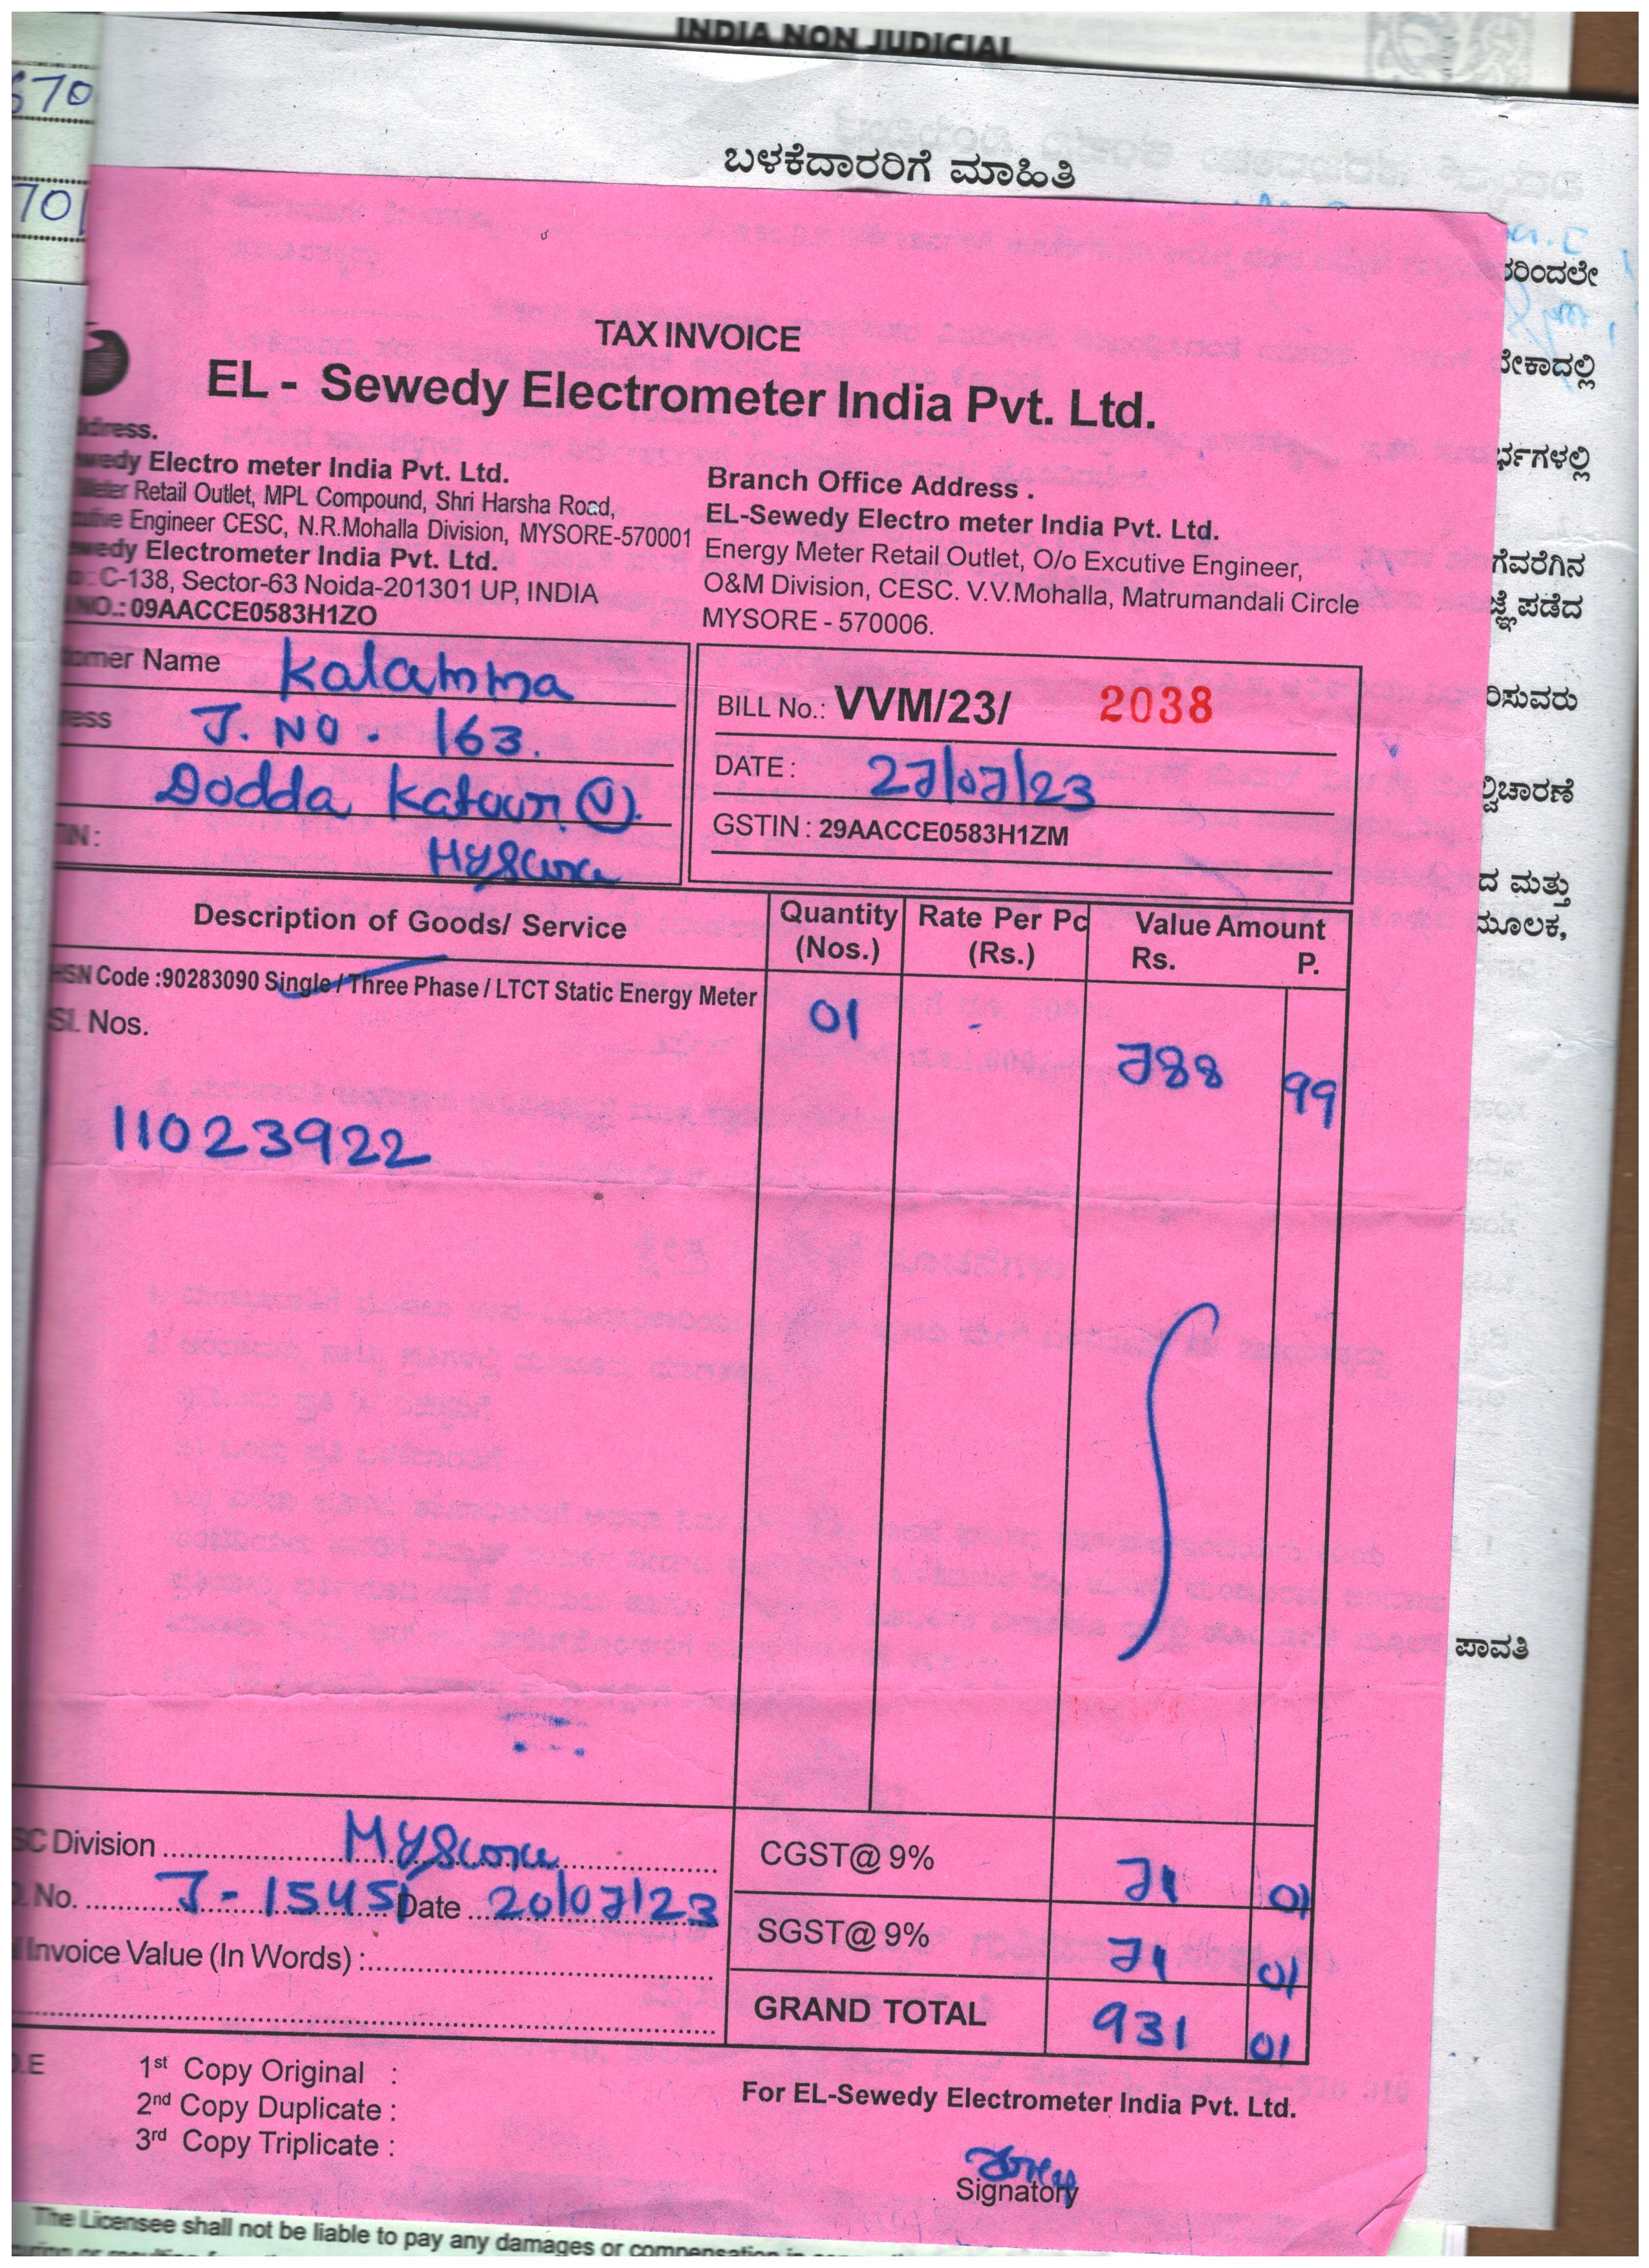 INDIA NON JUDICIAL
670
701
ಬಳಕೆದಾರರಿಗೆ ಮಾಹಿತಿ
ರಿಂದಲೇ
ಬೇಕಾದಲ್ಲಿ
ರ್ಭಗಳಲ್ಲಿ
ಗೆವರೆಗಿನ
ಜ್ಞೆ ಪಡೆದ
ರಿಸುವರು
ಲ್ವಿಚಾರಣೆ
ದ ಮತ್ತು
ಮೂಲಕ,
ಪಾವತಿ
TAX INVOICE
EL - Sewedy Electrometer India Pvt. Ltd.
ddress.
wedy Electro meter India Pvt. Ltd.
Meter Retail Outlet, MPL Compound, Shri Harsha Road,
utive Engineer CESC, N.R.Mohalla Division, MYSORE-570001
wedy Electrometer India Pvt. Ltd.
C-138, Sector-63 Noida-201301 UP, INDIA
NO.: 09AACCE0583H1ZO
Branch Office Address .
EL-Sewedy Electro meter India Pvt. Ltd.
Energy Meter Retail Outlet, O/o Excutive Engineer,
O&M Division, CESC. V.V.Mohalla, Matrumandali Circle
MYSORE - 570006.
omer Name Kalamma
ress J. NO. 163.
Dodda Katoor (V).
TIN: Mysore
BILL No.: VVM/23/ 2038
DATE: 27/07/23
GSTIN : 29AACCE0583H1ZM
Description of Goods/ Service Quantity (Nos.) Rate Per Pc (Rs.) Value Amount Rs. P.
HSN Code :90283090 Single / Three Phase / LTCT Static Energy Meter 01 - 788 99
Sl. Nos.
11023922
SC Division Mysore
CGST@ 9% 71 01
No. J-15451 Date 20/07/23
SGST@ 9% 71 01
Invoice Value (In Words) :
GRAND TOTAL 931 01
.E 1st Copy Original :
2nd Copy Duplicate :
3rd Copy Triplicate :
For EL-Sewedy Electrometer India Pvt. Ltd.
Signatory
The Licensee shall not be liable to pay any damages or compensation